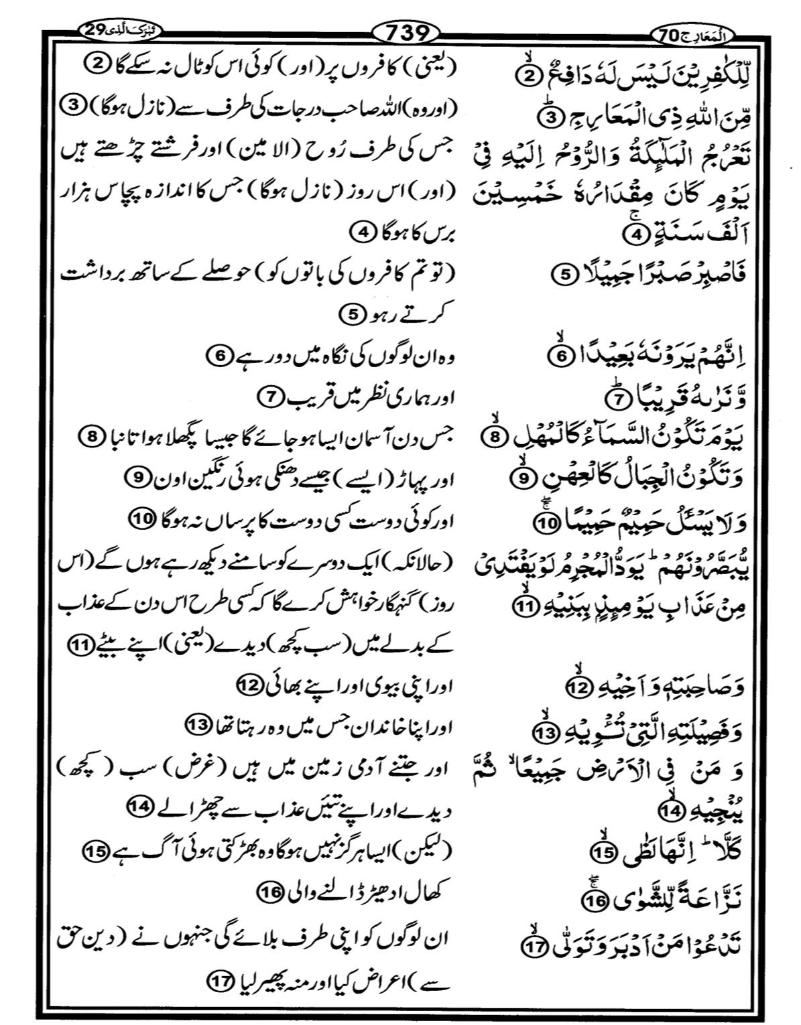 اَلْمَعَارِج 70
739
تَبٰرَكَ الَّذِی 29
لِّلْكٰفِرِیْنَ لَیْسَ لَهٗ دَافِعٌ ۙ2
(یعنی) کافروں پر (اور) کوئی اس کو ٹال نہ سکے گا 2
مِّنَ اللّٰهِ ذِی الْمَعَارِجِ ؕ3
(اور وہ) اللہ صاحب درجات کی طرف سے (نازل ہوگا) 3
تَعْرُجُ الْمَلٰٓىِٕكَةُ وَالرُّوْحُ اِلَیْهِ فِیْ
یَوْمٍ كَانَ مِقْدَارُهٗ خَمْسِیْنَ
اَلْفَ سَنَةٍ ۚ4
جس کی طرف رُوح (الامین) اور فرشتے چڑھتے ہیں
(اور) اس روز (نازل ہوگا) جس کا اندازہ پچاس ہزار
برس کا ہوگا 4
فَاصْبِرْ صَبْرًا جَمِیْلًا 5
(تو تم کافروں کی باتوں کو) حوصلے کے ساتھ برداشت
کرتے رہو 5
اِنَّهُمْ یَرَوْنَهٗ بَعِیْدًا ۙ6
وہ ان لوگوں کی نگاہ میں دور ہے 6
وَّنَرٰىهُ قَرِیْبًا ؕ7
اور ہماری نظر میں قریب 7
یَوْمَ تَكُوْنُ السَّمَآءُ كَالْمُهْلِ ۙ8
جس دن آسمان ایسا ہو جائے گا جیسا پگھلا ہوا تانبا 8
وَتَكُوْنُ الْجِبَالُ كَالْعِهْنِ ۙ9
اور پہاڑ (ایسے) جیسے دھنکی ہوئی رنگین اون 9
وَلَا یَسْـَٔلُ حَمِیْمٌ حَمِیْمًا ۚۖ10
اور کوئی دوست کسی دوست کا پرساں نہ ہوگا 10
یُّبَصَّرُوْنَهُمْ ؕ یَوَدُّ الْمُجْرِمُ لَوْ یَفْتَدِیْ
مِنْ عَذَابِ یَوْمِىِٕذٍۭ بِبَنِیْهِ ۙ11
(حالانکہ) ایک دوسرے کو سامنے دیکھ رہے ہوں گے (اس
روز) گنہگار خواہش کرے گا کہ کسی طرح اس دن کے عذاب
کے بدلے میں (سب کچھ) دیدے (یعنی) اپنے بیٹے 11
وَصَاحِبَتِهٖ وَاَخِیْهِ ۙ12
اور اپنی بیوی اور اپنے بھائی 12
وَفَصِیْلَتِهِ الَّتِیْ تُـْٔوِیْهِ ۙ13
اور اپنا خاندان جس میں وہ رہتا تھا 13
وَمَنْ فِی الْاَرْضِ جَمِیْعًا ۙ ثُمَّ
یُنْجِیْهِ ۙ14
اور جتنے آدمی زمین میں ہیں (غرض) سب (کچھ)
دیدے اور اپنے تئیں عذاب سے چھڑا لے 14
كَلَّا ؕ اِنَّهَا لَظٰی ۙ15
(لیکن) ایسا ہرگز نہیں ہوگا وہ بھڑکتی ہوئی آگ ہے 15
نَزَّاعَةً لِّلشَّوٰی ۚۖ16
کھال ادھیڑ ڈالنے والی 16
تَدْعُوْا مَنْ اَدْبَرَ وَتَوَلّٰی ۙ17
ان لوگوں کو اپنی طرف بلائے گی جنہوں نے (دین حق
سے) اعراض کیا اور منہ پھیر لیا 17